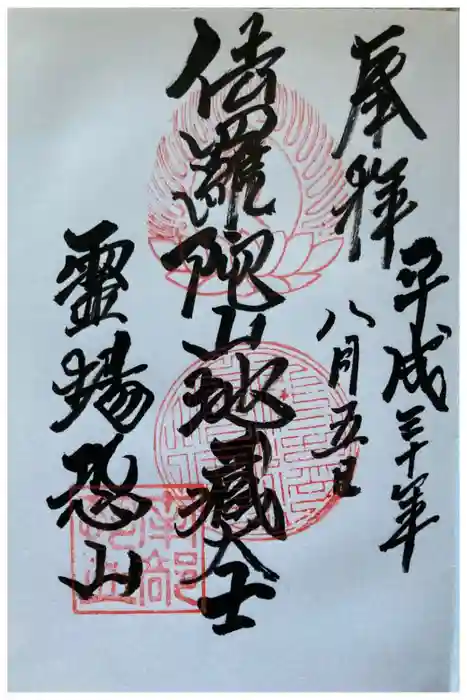 奉拝
平成三十年
八月五日
佉羅陀山地蔵大士
霊場恐山